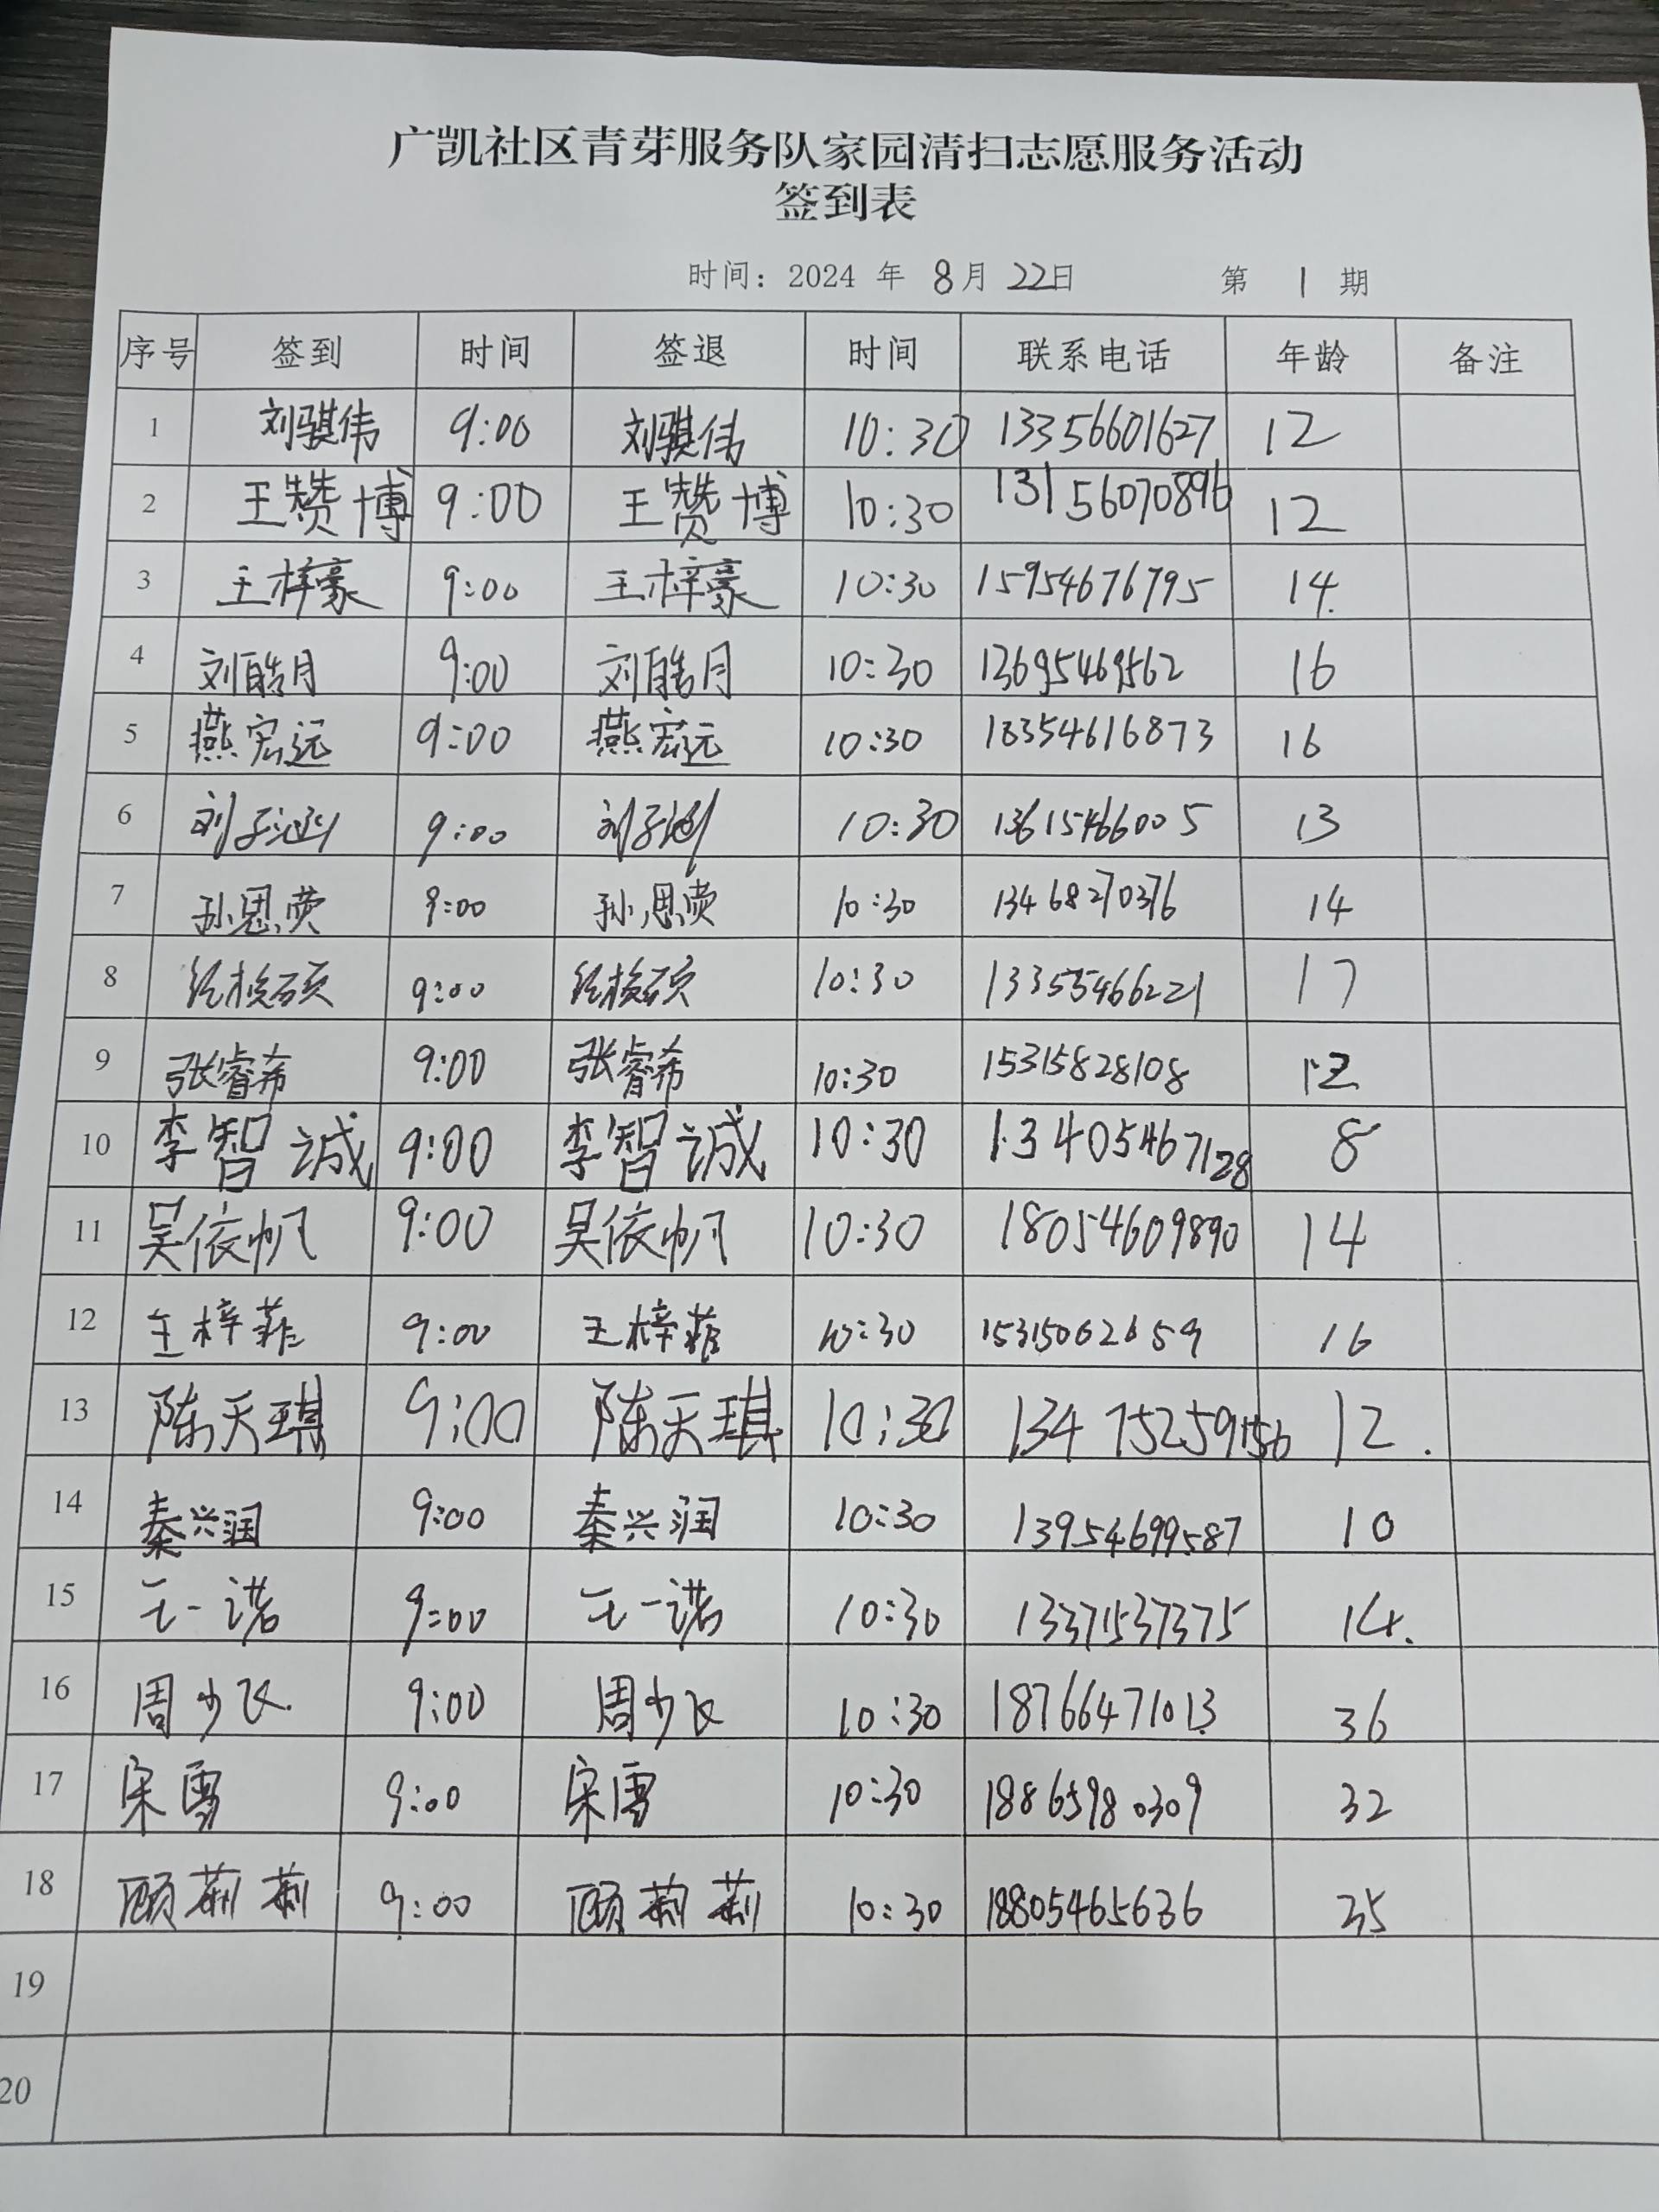 广凯社区青芽服务队家园清扫志愿服务活动
签到表
时间：2024 年 8月 22日 第 1 期
序号 签到 时间 签退 时间 联系电话 年龄 备注
1 刘骐伟 9:00 刘骐伟 10:30 13356601627 12
2 王赞博 9:00 王赞博 10:30 13156070896 12
3 王梓豪 9:00 王梓豪 10:30 15954676795 14.
4 刘皓月 9:00 刘皓月 10:30 13695469562 16
5 燕宏远 9:00 燕宏远 10:30 16
6 刘子涵 9:00 刘子涵 10:30 13615466005 13
7 孙思荧 9:00 孙思荧 10:30 13468270376 14
8 9:00 10:30 13355466221 17
9 张睿希 9:00 张睿希 10:30 15315828108 12
10 李智诚 9:00 李智诚 10:30 13405467128 8
11 吴依帆 9:00 吴依帆 10:30 18054609890 14
12 王梓菲 9:00 王梓菲 10:30 15315062659 16
13 陈天琪 9:00 陈天琪 10:30 13475259156 12.
14 秦兴润 9:00 秦兴润 10:30 13954699587 10
15 王一诺 9:00 王一诺 10:30 13371537375 14.
16 周少飞 9:00 周少飞 10:30 18766471013 36
17 宋雪 9:00 宋雪 10:30 18865980309 32
18 顾莉莉 9:00 顾莉莉 10:30 18805465636 35
19
20